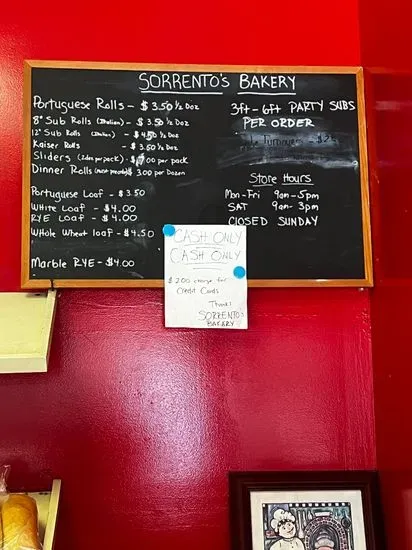 SORRENTO'S BAKERY
Portuguese Rolls - $3.50 ½ Doz
8" Sub Rolls (Italian) - $3.50 ½ Doz
12" Sub Rolls (Italian) - $4.50 ½ Doz
Kaiser Rolls - $3.50 ½ Doz
Sliders (2doz per pack) - $ .00 per pack
Dinner Rolls $3.00 per Dozen
Portuguese Loaf - $3.50
White Loaf - $4.00
RYE Loaf - $4.00
Whole Wheat loaf - $4.50
Marble RYE - $4.00
3ft - 6ft PARTY SUBS
PER ORDER
Turnovers - $2
Store Hours
Mon-Fri 9am-5pm
SAT 9am-3pm
CLOSED SUNDAY
CASH ONLY
CASH ONLY
$2.00 charge for
Credit Cards
Thanks
SORRENTO'S
BAKERY